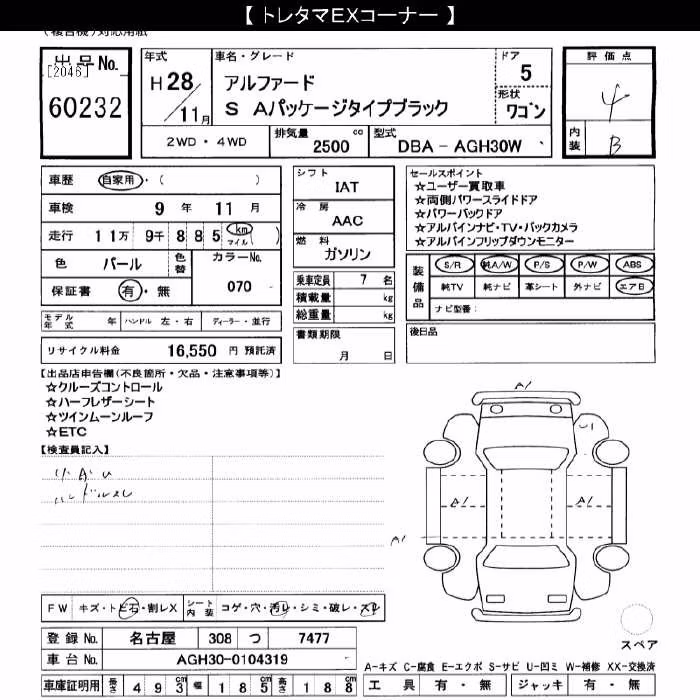 【 トレタマEXコーナー 】
(複合機)対応用紙
出品No.
[2046]
60232
年式
H28/11月
車名・グレード
アルファード
S Aパッケージタイプブラック
ドア
5
形状
ワゴン
評価点
4
内装
B
2WD・4WD
排気量
2500 cc
型式
DBA－AGH30W
車歴 自家用・( )
車検 9年 11月
走行 11万 9千 885 km マイル ( )
色 パール 色替
カラーNo.
070
保証書 有・無
シフト
IAT
冷房
AAC
燃料
ガソリン
乗車定員 7名
積載量 kg
総重量 kg
書類期限
月 日
セールスポイント
☆ユーザー買取車
☆両側パワースライドドア
☆パワーバックドア
☆アルパインナビ・TV・バックカメラ
☆アルパインフリップダウンモニター
装備品
S/R 純A/W P/S P/W ABS
純TV 純ナビ 革シート 外ナビ エアB
ナビ型番:
後日品
モデル年式 年 ハンドル 左・右 ディーラー・並行
リサイクル料金 16,550 円 預託済
【出品店申告欄(不良箇所・欠品・注意事項等)】
☆クルーズコントロール
☆ハーフレザーシート
☆ツインムーンルーフ
☆ETC
【検査員記入】
A1
A1
A1
A1
FW キズ・トビ石・割レX
シート内装 コゲ・穴・汚レ・シミ・破レ・スレ
登録No. 名古屋 308 つ 7477
車台No. AGH30-0104319
車庫証明用 長さ 493cm 幅 185cm 高さ 188cm
スペア
A-キズ C-腐食 E-エクボ S-サビ U-凹ミ W-補修 XX-交換済
工具 有・無 ジャッキ 有・無